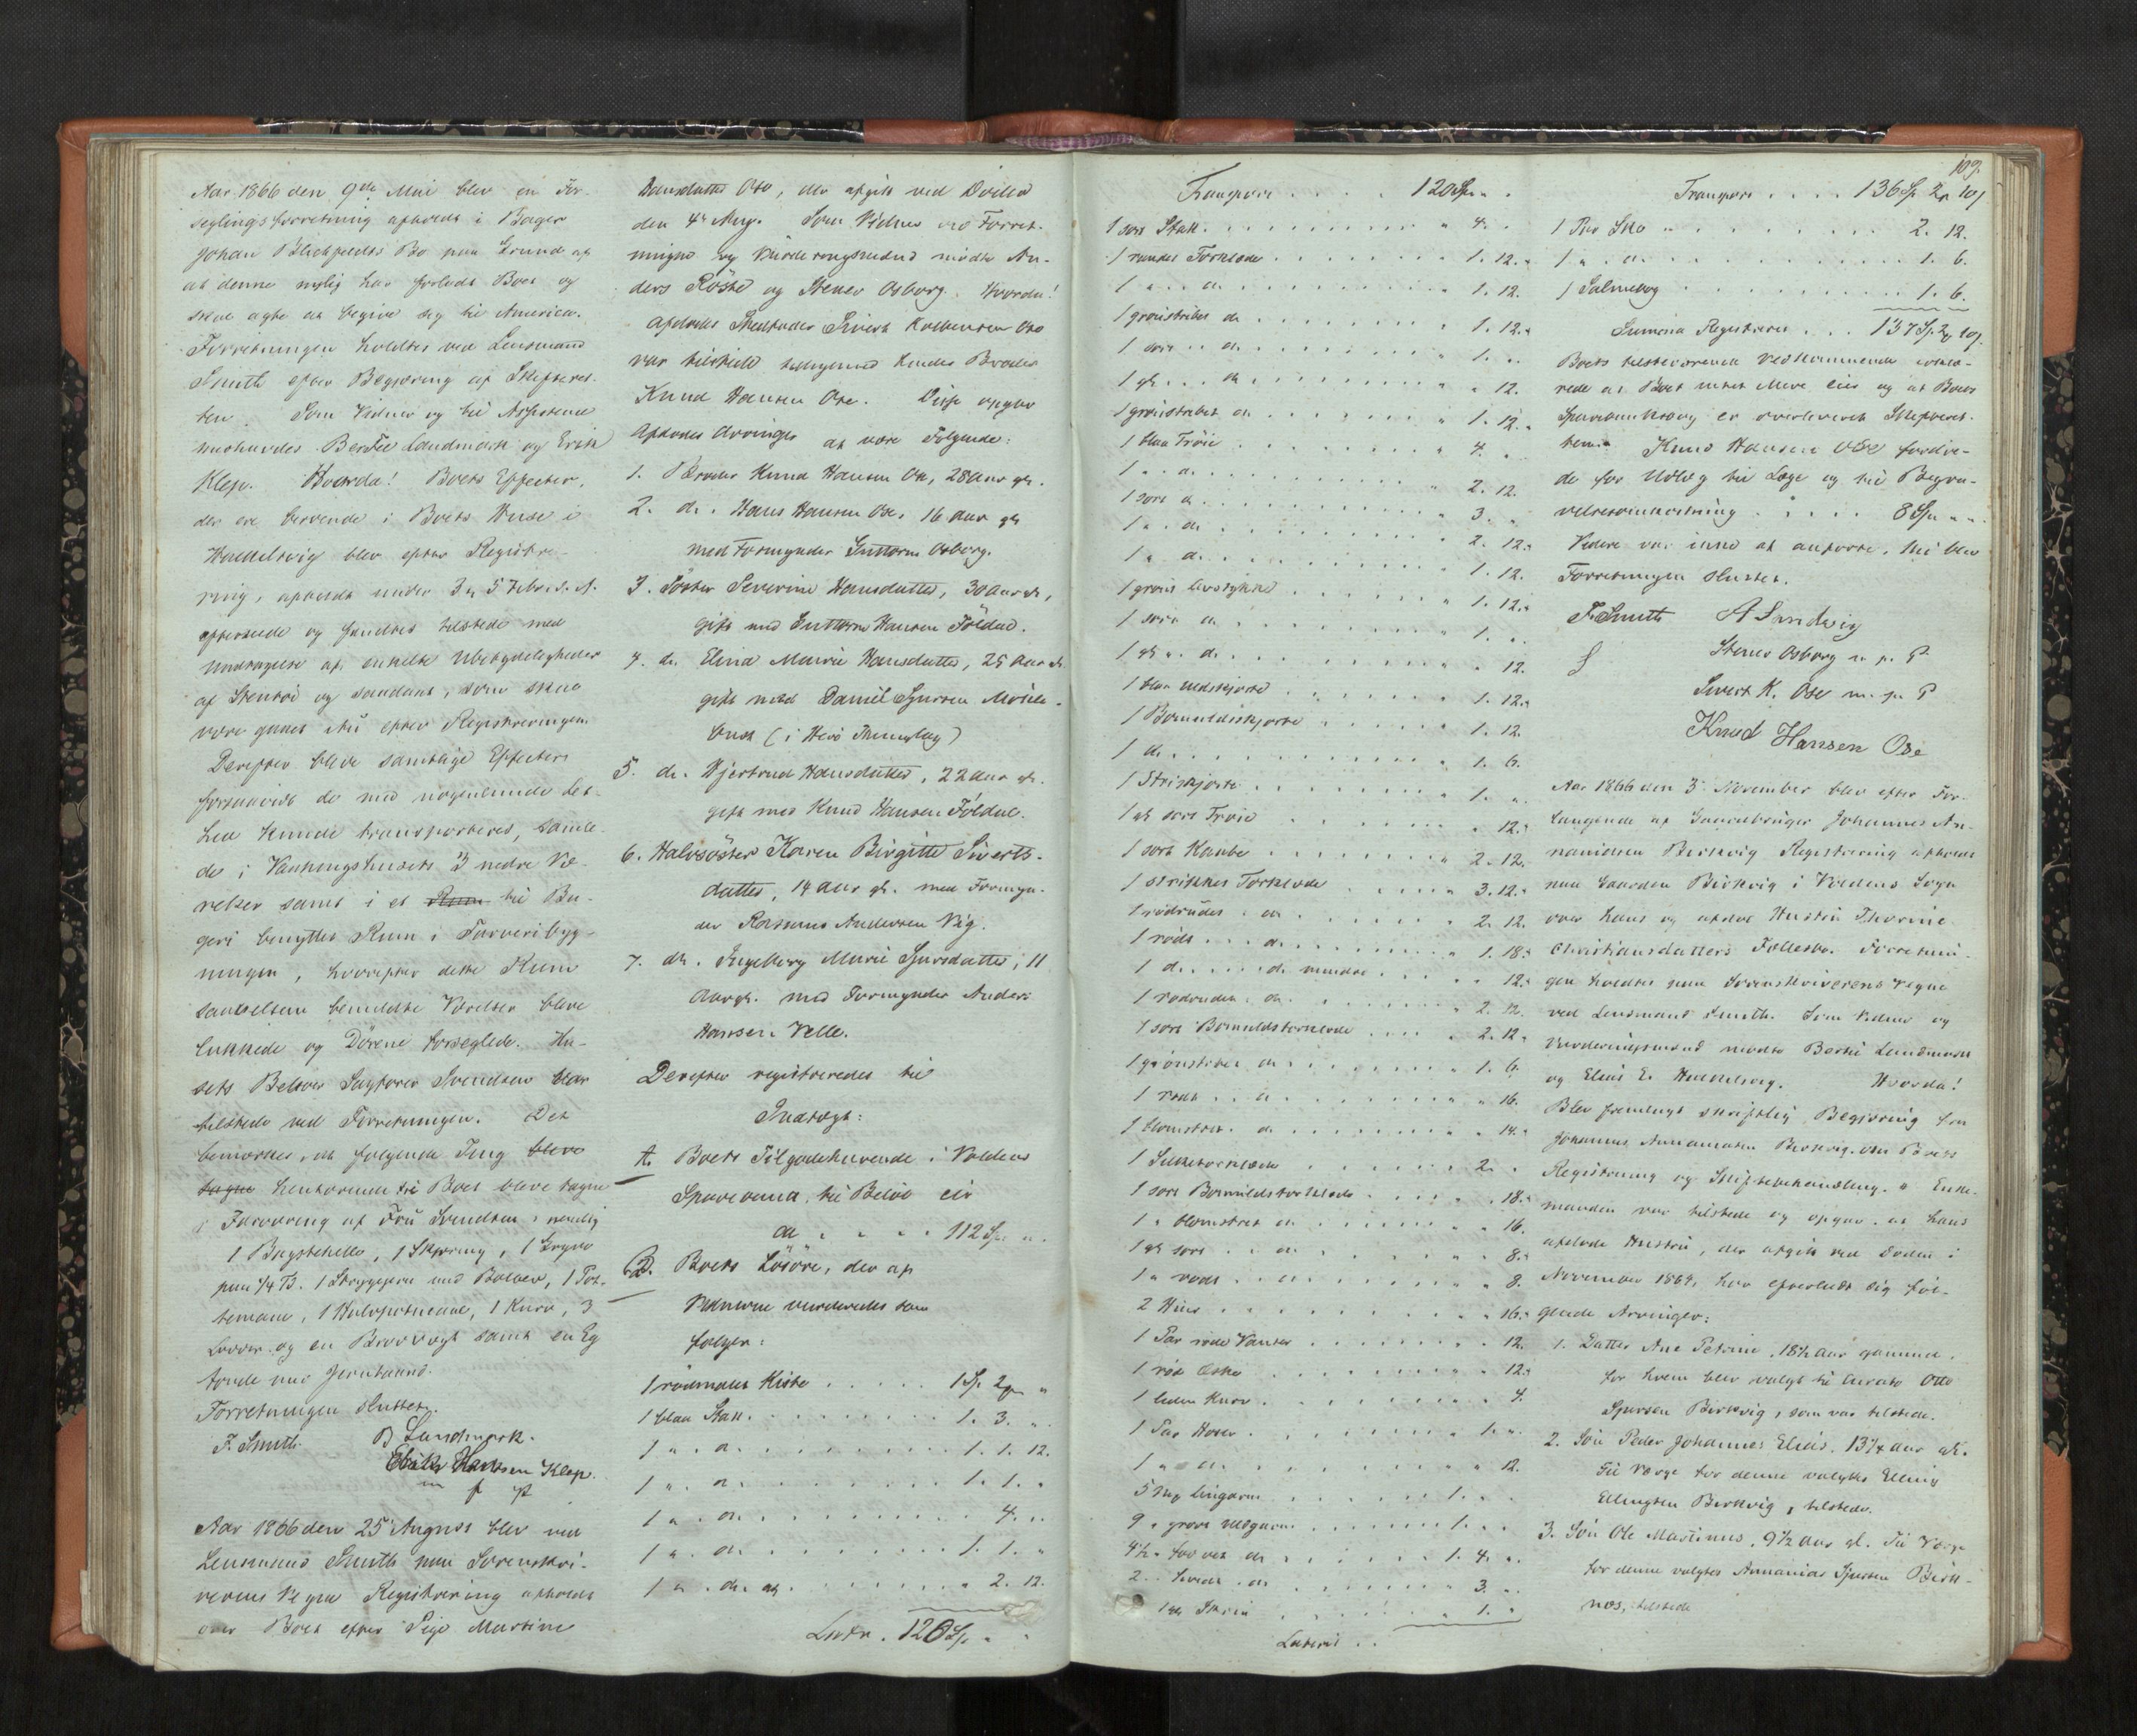 Aar 1866 den 9de Mai blev en For-
seglingsforretning afholdt i Bager
Johan Blichfeldts Bo paa Grund af
at denne nylig har forladt Boet og
skal agte at begive sig til America.
Forretningen holdtes ved Lensmand
Smith efter Begjæring af Skifteret-
ten. Som Vidner og til Assistence
medhavdes Bertil Landmark og Erik
Klep. Hvorda! Boets Effecter,
der ere beroende i Boets Huse i
Hareidsvig blev efter Registre-
ring, afholdt under 3 & 5 Febr. d. A.
efterseede og fandtes tilstede med
Undtagelse af enkelte Ubetydeligheder
af Stentøi og saadant, som skal
være gaaet itu efter Registreringen.
Derefter bleve samtlige Effecter
forsaavidt de med nogenlunde Let-
hed kunde transporteres, samle-
de i Vaaningshusets 3 nedre Væ-
relser samt i et Rum til Ba-
geri benyttet Rum i Farveribyg-
ningen, hvorefter dette Rum
saavelsom bemeldte Værelser bleve
lukkede og Dørene forseglede. Hu-
sets Beboer Sagfører Svendsen var
tilstede ved Forretningen. Det
bemærkes, at følgende Ting bleve
tagne henhørende til Boet bleve tagne
i Forvaring af Fru Svendsen, nemlig
1 Bryggekjelle, 1 , 1 Gryde
paa 1/4 Td. 1 Strygejern med Bolter, 1 Pot-
temaal, 1 Halvpottemaal, 1 Kurv, 3
Lodder og en Brevvægt samt en Eg
Tønde med Jernbaand.
Forretningen sluttet.
F. Smith. B Landmark.
Erik Hansen Klep.
m f P
Aar 1866 den 25 August blev ved
Lensmand Smith paa Sorenskri-
verens Vegne Registrering afholdt
over Boet efter Pige Martine
Hansdatter Ose, der afgik ved Døden
den 4de Aug. Som Vidner ved Forret-
ningen og Vurderingsmænd mødte An-
ders Røste og Stener Osborg. Hvorda!
Afdødes Stedfader Sivert Kolbensen Ose
var tilstede tilligemed hendes Broder
Knud Hansen Ose. Disse opgav
Afdødes Arvinger at være Følgende:
1. Broder Knud Hansen Ose, 28 Aar gl.
2. do. Hans Hansen Ose, 16 Aar gl.
med Formynder Guttorm Osborg.
3. Søster Severine Hansdatter, 30 Aar gl,
gift med Guttorm Hansen Földal.
4. do. Elina Marie Hansdatter, 25 Aar gl.
gift med Daniel Sjursen Mokle-
bust (i Herö Thinglag)
5. do. Hjertrud Hansdatter, 22 Aar gl.
gift med Knud Hansen Földal.
6. Halvsöster Karen Birgitte Siverts-
datter, 14 Aar gl. med Formyn-
der Rasmus Andersen Vig.
7. do. Ingeborg Marie Sjursdatter, 11
Aar gl. med Formynder Anders
Hansen Velle.
Derefter registreredes til
Indtægt:
A. Boets Tilgodehavende i Voldens
Sparebank, til Beløb cir
ca . . . . 112 Sp. "
B. Boets Løsøre, der af
Vidnerne vurderedes som
følger:
1 rødmalet Kiste . . . . . 1 Sp. 2 . "
1 blaa Stak . . . . . 1. 3. "
1 " . do. . . . . . 1. 1. 12.
1 " . do. . . . . . 1. 1. "
1 " . do. . . . . . 4. "
1 " . do. . . . . . 1. 1. "
1 " . do. gl. . . . . . " 2. 12.
Latr. 120 Sp. " "
109.
Transport . . . . 120 Sp. " "
1 sort Stak . . . . . " 4. "
1 randet Forklæde . . . . . 1. 12. "
1 " . do. . . . . . 1. 12.
1 grønstribet do . . . . . 1. 12. "
1 sort . do. . . . . . " 1. "
1 gl. . . do . . . . . " " 12.
1 grønstribet do . . . . . " 1. 12. "
1 blaa Trøie . . . . . " 4. "
1 " . do. . . . . . " 2. 12.
1 sort do . . . . . " 3. "
1 " . do. . . . . . " 2. 12. "
1 " do. . . . . . " 1. 12.
1 grønt Livstykke . . . . . " 1. 12. "
1 sort do . . . . . " 1. "
1 gl " . do. . . . . . " " 12.
1 blaa Uldskjorte . . . . . " 1. 12. "
1 Bomuldsskjorte . . . . . " 1. 12.
1 do. . . . . . " 1. 6.
1 Striskjorte . . . . . " 1. "
1 gl sort Trøie . . . . . " " 12. "
1 sort Kaabe . . . . . " 2. 12.
1 strikket Tørklæde . . . . . " 3. 12. "
1 rødrudet . do . . . . . " 2. 12.
1 rødt . . . do . . . . . " 1. 18. "
1 do. . . . . do. mindre . . . " " 12. "
1 rødrudet . do. . . . . . " 2. 12.
1 sort Bomuldstørklæde . . . . " 2. 12. "
1 grønstribet do . . . . . " 1. 6.
1 rødt . . . do . . . . . " " 16.
1 blomstret . do . . . . . " " 14. "
1 Silketørklæde . . . . . " 2. "
1 sort Bomuldstørklæde . . . . " " 18. "
1 " blomstret do . . . . . " " 16.
1 gl sort . . do . . . . . " " 8. "
1 " rødt . . do . . . . . " " 8.
2 Huer . . . . . " " 16. "
1 Par røde Vanter . . . . . " " 12.
1 rød Æske . . . . . " " 12. "
1 liden Kurv . . . . . " " 4.
1 Par Hoser . . . . . " 1. "
1 " do. . . . . . " " 12.
5 Lingarn . . . . . 1. "
9 " grovt Uldgarn . . . . . 1. "
4½ " farvet do . . . . . 1. 4. "
2 . . hvidt . do . . . . . " 3. "
1 gl Skrin . . . . . " 1. "
Lateris . .
Transport . . . . 136 Sp. 2 10 s
1 Par Sko " . . . . . 2. 12.
1 " . do. . . . . . 1. 6.
1 Salmebog . . . . . 1. 6.
Summa Registreret . . . 137 Sp. 2 10 s.
Boets tilstedeværende Vedkommende erklæ-
rede at Boet intet Mere eier og at Boets
Sparebanksbog er overleveret Skifteret-
ten. Knud Hansen Ose fordre-
de for Udlæg til Læge og til Begra-
velsesomkostning . . . . . 8 Sp. " "
Videre var intet at anføre, thi blev
Forretningen sluttet.
F. Smith A Sundvig
Stener Osborg m. p. P.
Sivert K. Ose m. p. P
Knud Hansen Ose
Aar 1866 den 3 November blev efter For-
langende af Gaardbruger Johannes An-
naniasen Birkvig Registrering afholdt
paa Gaarden Birkvig i Voldens Sogn
over hans og afdøde Hustru Thorine
Christiansdatters Fællesbo. Forretnin-
gen holdtes paa Sorenskriverens Vegne
ved Lensmand Smith. Som Vidner og
Vurderingsmænd mødte Bertil Landmark
og Elias E. Hareidsvig. Hvorda!
Blev fremlagt skriftlig Begjæring fra
Johannes Annaniasen Birkvig om Boets
Registrering og Skiftebehandling. " Enke-
manden var tilstede og opgav, at hans
afdøde Hustru, der afgik ved Døden i
November 1864, har efterladt sig føl-
gende Arvinger:
1. Datter Ane Petrine, 18½ Aar gammel,
for hvem blev valgt til Curator Otto
Sjursen Birkvig, som var tilstede.
2. Søn Peder Johannes Elias, 13¼ Aar gl.
Til Værge for denne valgtes Elling
Ellingsen Birkvig, tilstede.
3. Søn Ole Martinus, 9½ Aar gl. Til Værge
for denne valgtes Annanias Sjursen Birk-
nes, tilstede